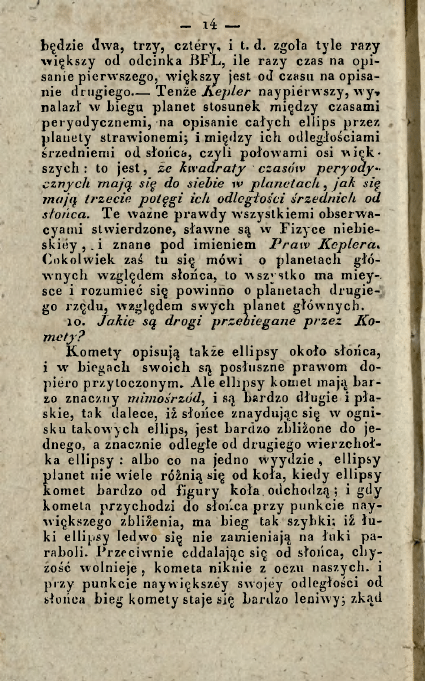 — 14 —
będzie dwa, trzy, cztéry, i t. d. zgoła tyle razy
większy od odcinka BFL, ile razy czas na opi-
sanie pierwszego, większy jest od czasu na opisa-
nie drugiego.— Tenże Kepler naypiérwszy, wy-
nalazł w biegu planet stosunek między czasami
peryodycznemi, na opisanie całych ellips przez
planety strawionemi; i między ich odległościami
śrzedniemi od słońca, czyli połowami osi więk-
szych: to jest, że kwadraty czasów peryody-
cznych mają się do siebie w planetach, jak się
mają trzecie potęgi ich odległości śrzednich od
słońca. Te ważne prawdy wszystkiemi obserwa-
cyami stwierdzone, sławne są w Fizyce niebie-
skiéy, i znane pod imieniem Praw Keplera.
Cokolwiek zaś tu się mówi o planetach głó-
wnych względem słońca, to wszystko ma miey-
sce i rozumieć się powinno o planetach drugie-
go rzędu, względem swych planet głównych.
10. Jakie są drogi przebiegane przez Ko-
mety?
Komety opisują także ellipsy około słońca,
i w biegach swoich są posłuszne prawom do-
piéro przytoczonym. Ale ellipsy komet mają bar-
zo znaczny mimośrzód, i są bardzo długie i pła-
skie, tak dalece, iż słońce znaydując się w ogni-
sku takowych ellips, jest bardzo zbliżone do je-
dnego, a znacznie odległe od drugiego wierzchoł-
ka ellipsy: albo co na jedno wyydzie, ellipsy
planet nie wiele różnią się od koła, kiedy ellipsy
komet bardzo od figury koła odchodzą; i gdy
kometa przychodzi do słońca przy punkcie nay-
większego zbliżenia, ma bieg tak szybki; iż łu-
ki ellipsy ledwo się nie zamieniają na łuki pa-
raboli. Przeciwnie oddalając się od słońca, chy-
żość wolnieje, kometa niknie z oczu naszych. i
przy punkcie naywiększéy swojéy odległości od
słońca bieg komety staje się bardzo leniwy; zkąd